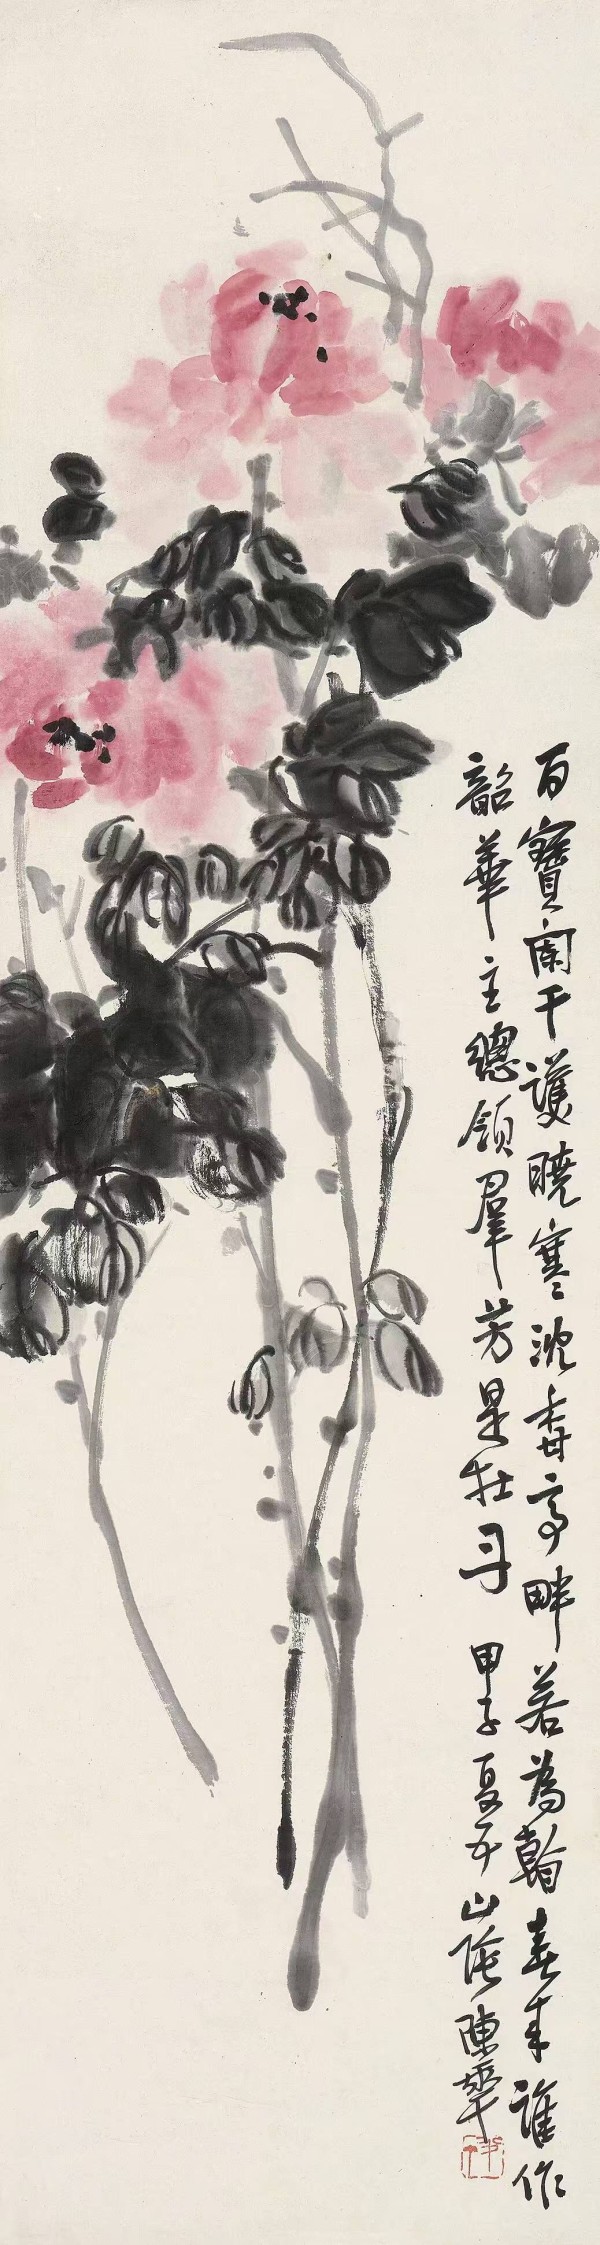 百寶闌干護曉寒沈香亭畔若為看春來誰作
韶華主總領羣芳是牡丹 甲子夏五山陰陳年